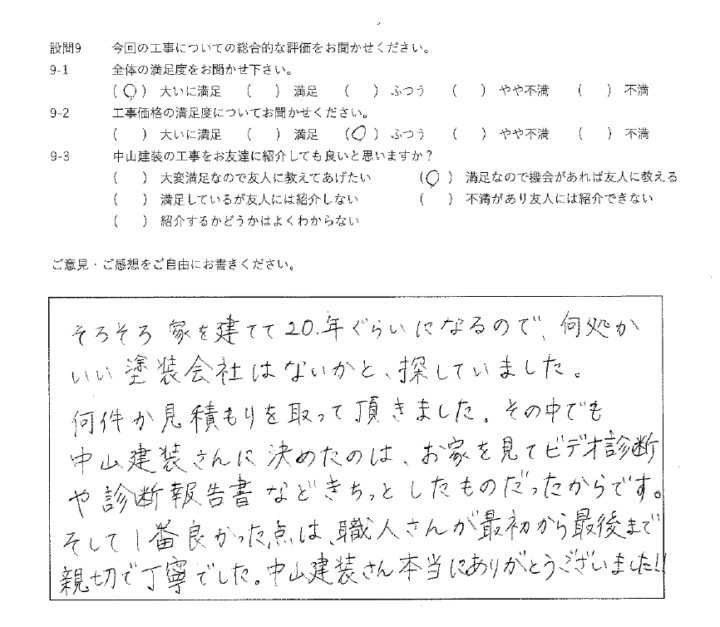 設問9 今回の工事についての総合的な評価をお聞かせください。
9-1 全体の満足度をお聞かせ下さい。
(○) 大いに満足 ( ) 満足 ( ) ふつう ( ) やや不満 ( ) 不満
9-2 工事価格の満足度についてお聞かせください。
( ) 大いに満足 ( ) 満足 (○) ふつう ( ) やや不満 ( ) 不満
9-3 中山建装の工事をお友達に紹介しても良いと思いますか?
( ) 大変満足なので友人に教えてあげたい (○) 満足なので機会があれば友人に教える
( ) 満足しているが友人には紹介しない ( ) 不満があり友人には紹介できない
( ) 紹介するかどうかはよくわからない
ご意見・ご感想をご自由にお書きください。
そろそろ家を建てて20.年ぐらいになるので、何処か
いい塗装会社はないかと、探していました。
何件か見積もりを取って頂きました。その中でも
中山建装さんに決めたのは、お家を見てビデオ診断
や診断報告書などきちっとしたものだったからです。
そして1番良かった点は、職人さんが最初から最後まで
親切で丁寧でした。中山建装さん本当にありがとうございました!!